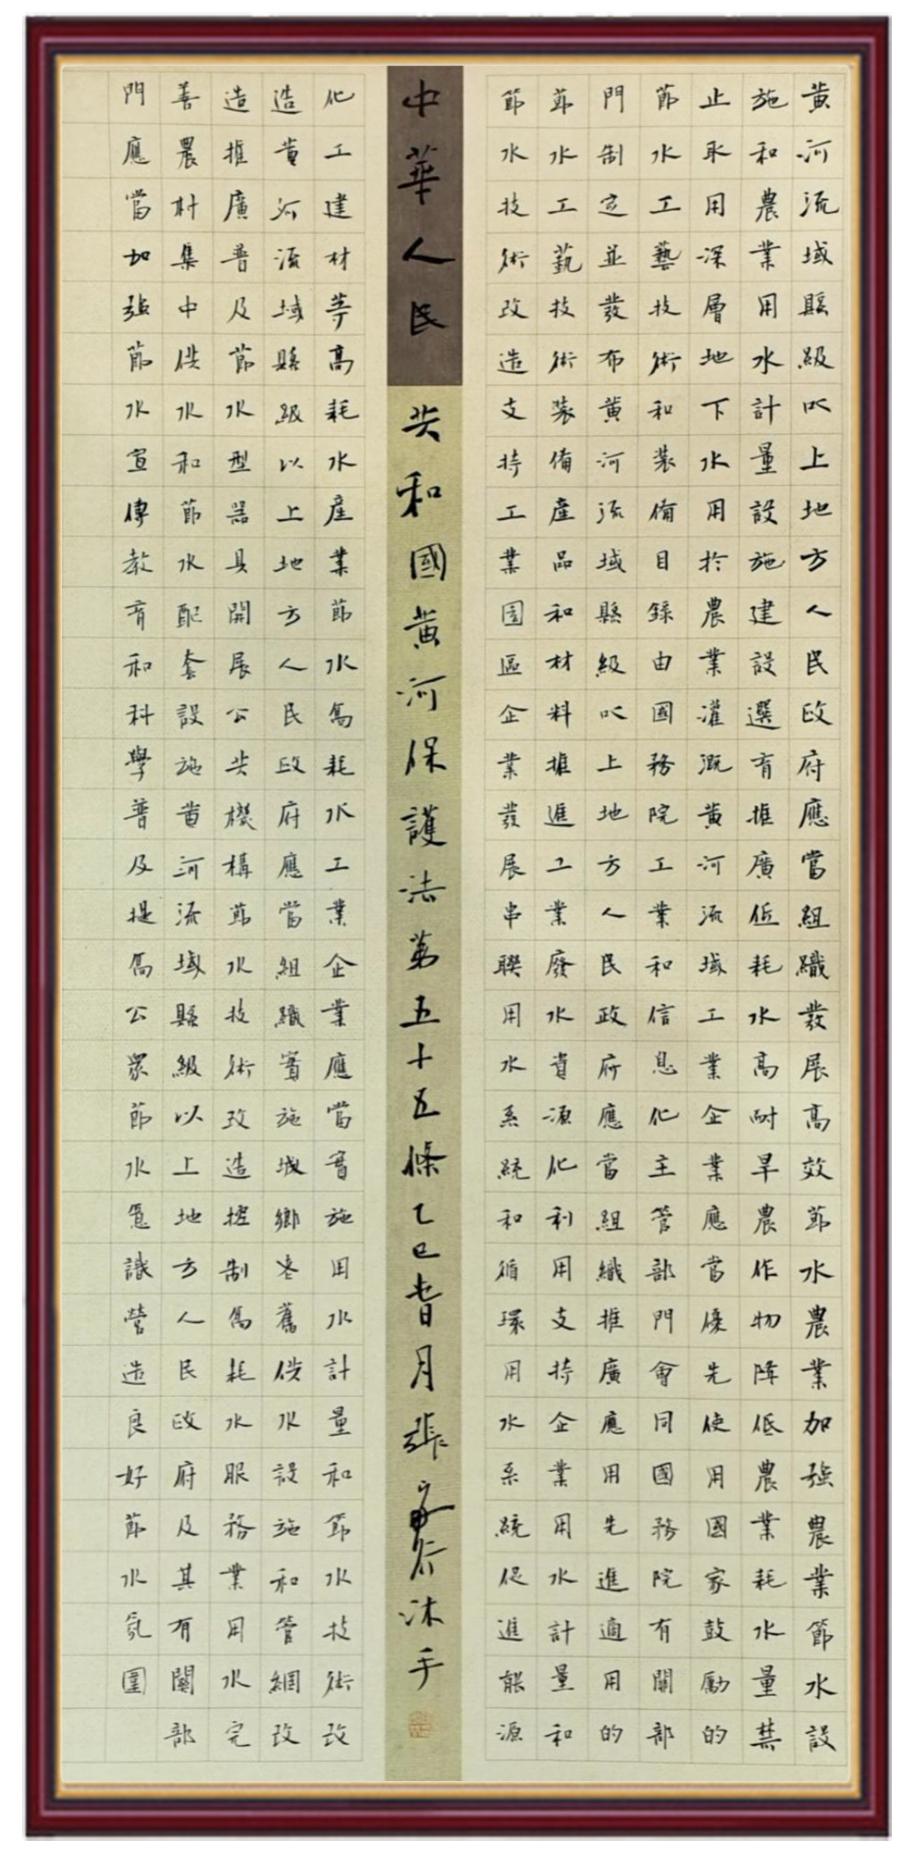 黃河流域縣級以上地方人民政府應當組織發展高效節水農業加強農業節水設
施和農業用水計量設施建設選有推廣低耗水高耐旱農作物降低農業耗水量禁
止取用深層地下水用於農業灌溉黃河流域工業企業應當優先使用國家鼓勵的
節水工藝技術和裝備目錄由國務院工業和信息化主管部門會同國務院有關部
門制定並發布黃河流域縣級以上地方人民政府應當組織推廣應用先進適用的
節水工藝技術裝備產品和材料推進工業廢水資源化利用支持企業用水計量和
節水技術改造支持工業園區企業發展串聯用水系統和循環用水系統促進能源
中華人民共和國黃河保護法第五十五條乙巳春月張沐手
化工建材等高耗水產業節水高耗水工業企業應當實施用水計量和節水技術改
造黃河流域縣級以上地方人民政府應當組織實施城鄉老舊供水設施和管網改
造推廣普及節水型器具開展公共機構節水技術改造控制高耗水服務業用水完
善農村集中供水和節水配套設施黃河流域縣級以上地方人民政府及其有關部
門應當加強節水宣傳教育和科學普及提高公眾節水意識營造良好節水氛圍